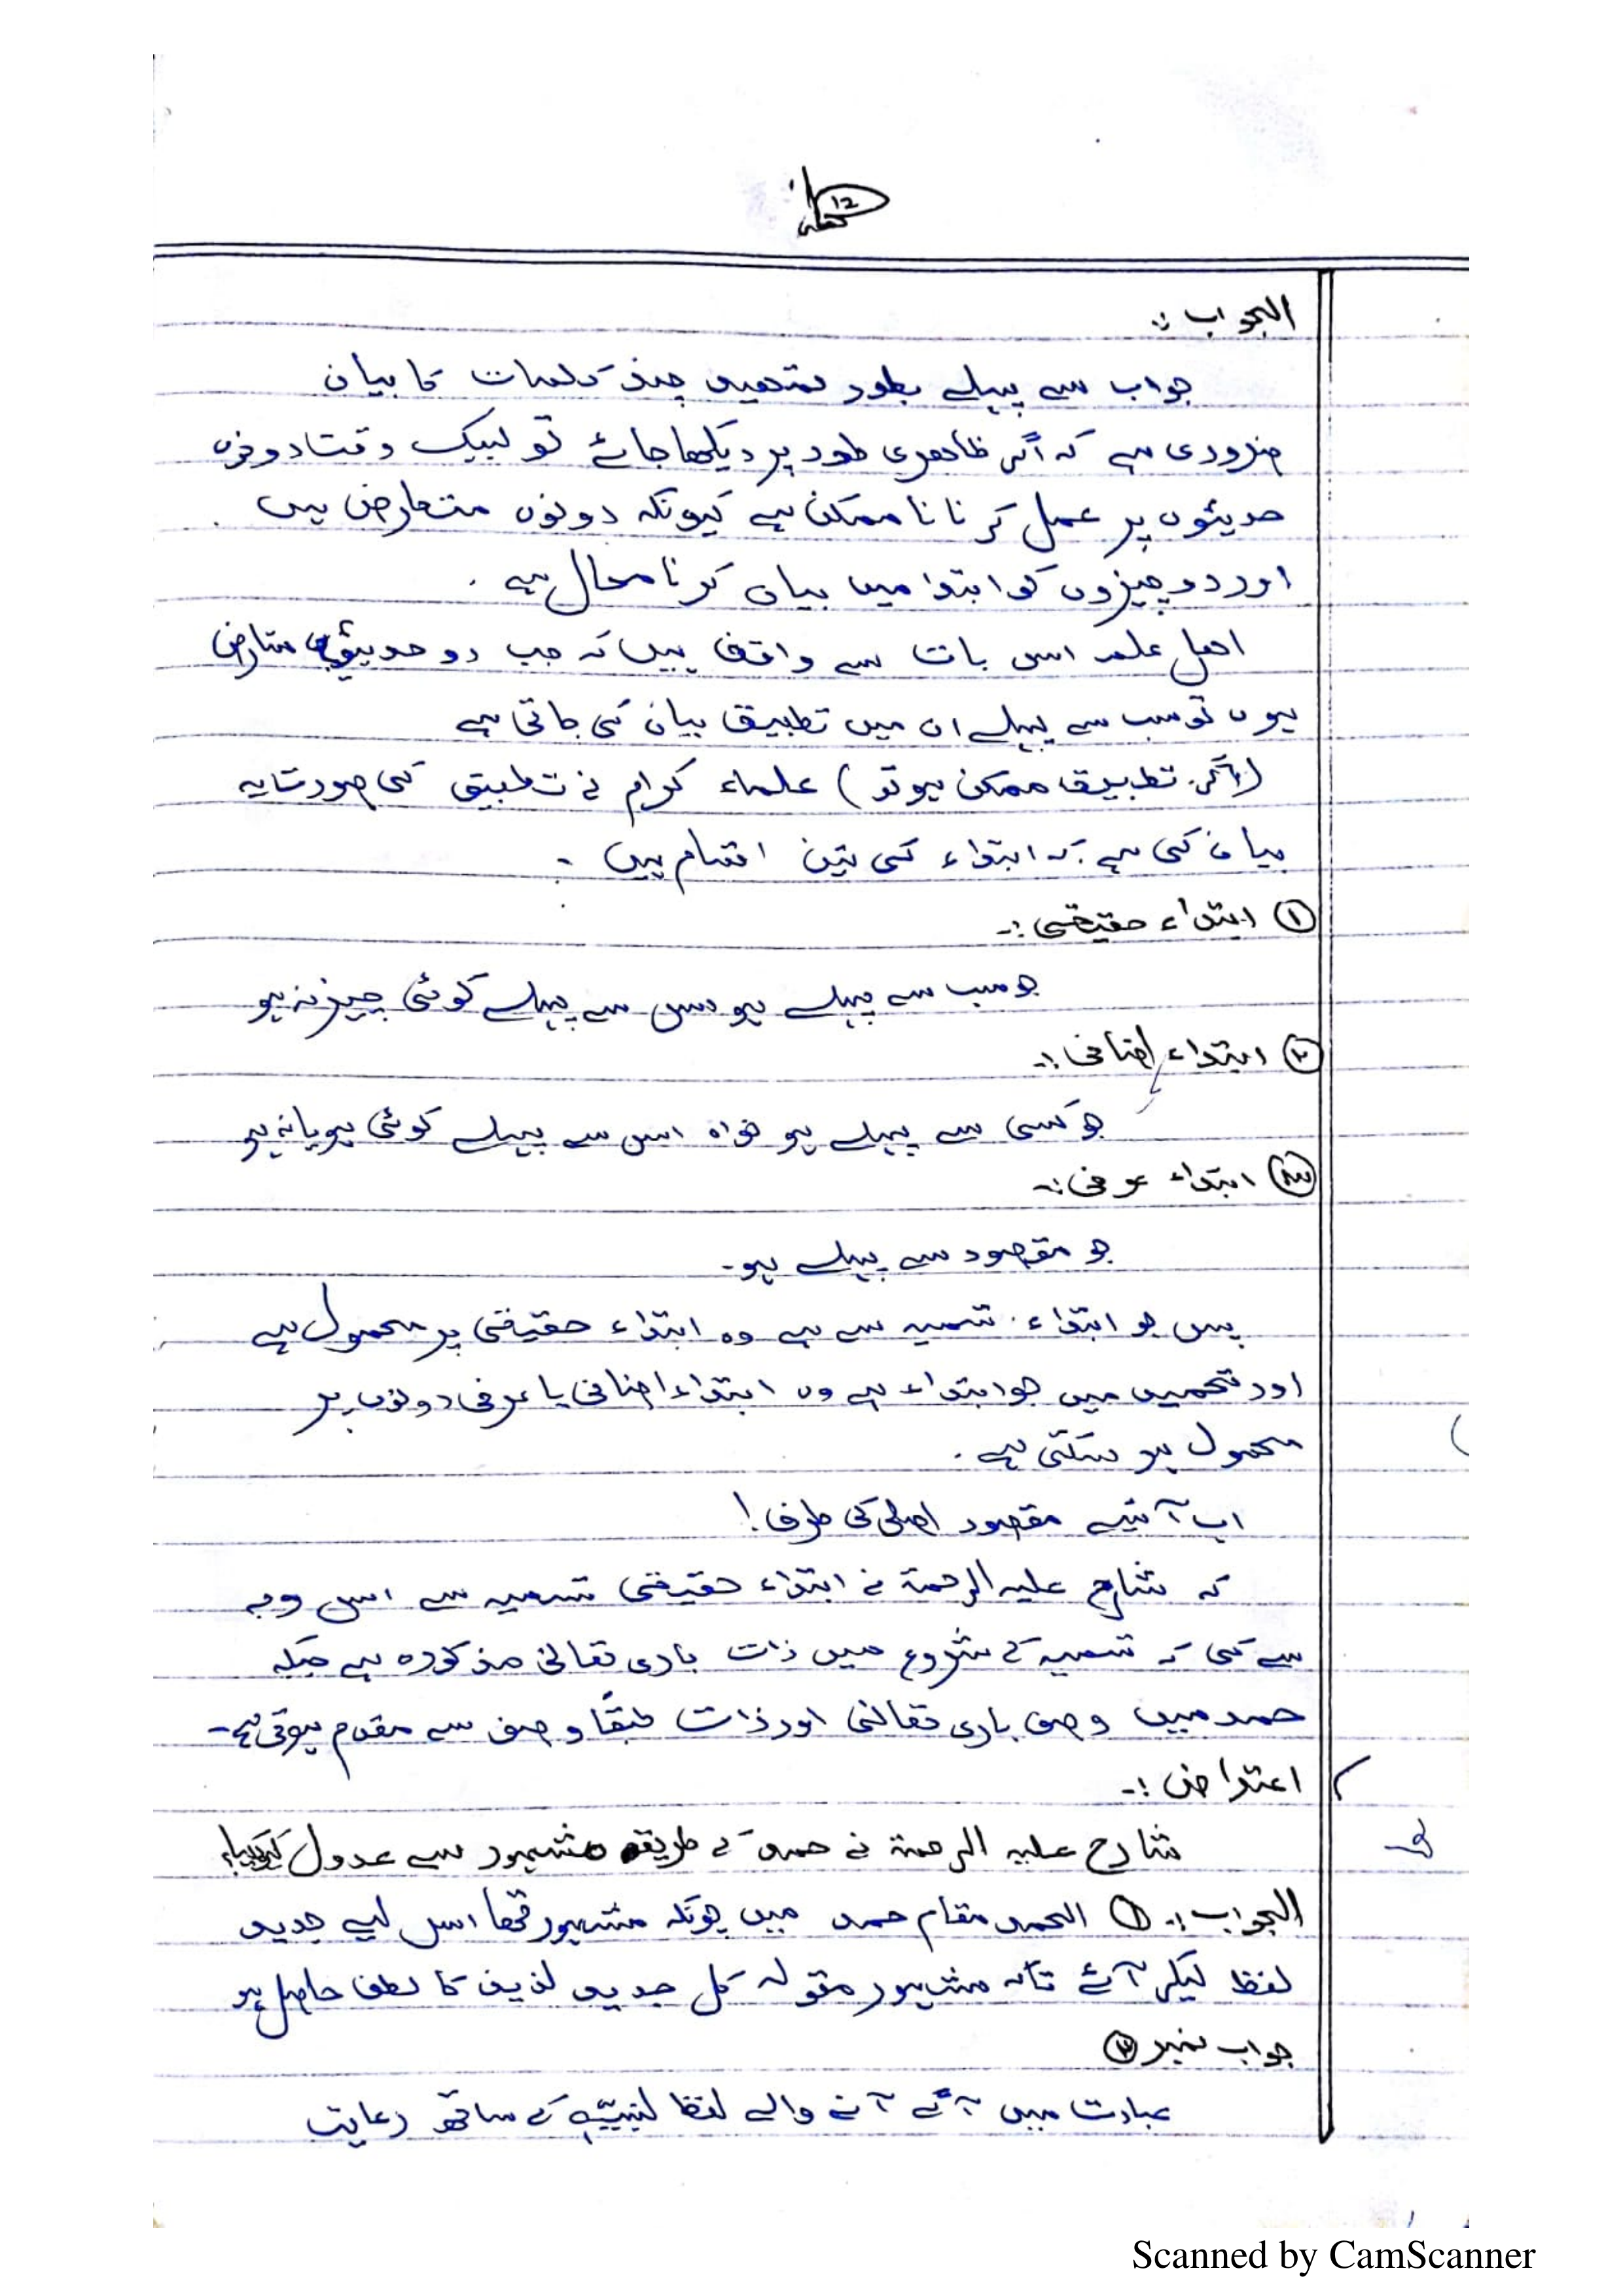 ۱۲
الجواب :-
جواب سے پہلے بطور تمھید چند کلمات کا بیان
ضروری ہے کہ اگر ظاھری طور پر دیکھا جائے تو لبیک وقتا دونوں
حدیثوں پر عمل کرنا ناممکن ہے کیونکہ دونوں متعارض ہیں
اور دو چیزوں کو ابتدا میں بیان کرنا محال ہے .
اھل علم اس بات سے واقف ہیں کہ جب دو حدیثیں متعارض
ہوں تو سب سے پہلے ان میں تطبیق بیان کی جاتی ہے
(اگر تطبیق ممکن ہو تو) علماء کرام نے تطبیق کی صورت یہ
بیان کی ہے کہ ابتداء کی تین اقسام ہیں -
① ابتداء حقیقی :-
جو سب سے پہلے ہو جس سے پہلے کوئی چیز نہ ہو
② ابتداء اضافی :-
جو کسی سے پہلے ہو خواہ اس سے پہلے کوئی ہو یا نہ ہو
③ ابتداء عرفی :-
جو مقصود سے پہلے ہو -
پس جو ابتداء تسمیہ سے ہے وہ ابتداء حقیقی پر محمول ہے
اور تحمید میں جو ابتداء ہے وہ ابتداء اضافی یا عرفی دونوں پر
محمول ہو سکتی ہے .
اب آئیے مقصود اصلی کی طرف !
کہ شارح علیہ الرحمۃ نے ابتداء حقیقی تسمیہ سے اس وجہ
سے کی کہ تسمیہ کے شروع میں ذات باری تعالی مذکورہ ہے جبکہ
حمد میں وصف باری تعالی اور ذات طبقاً وصف سے مقدم ہوتی ہے -
اعتراض :-
شارح علیہ الرحمۃ نے حمد کے طریقہ مشہور سے عدول کیوں کیا
الجواب :- ① الحمد مقام حمد میں چونکہ مشہور تھا اس لیے جدید
لفظ لیکر آئے تاکہ مشہور مقولہ کل جدید لذیذ کا لطف حاصل ہو
جواب نمبر ②
عبارت میں آگے آنے والے لفظ لنبیّہٖ کے ساتھ رعایت
Scanned by CamScanner